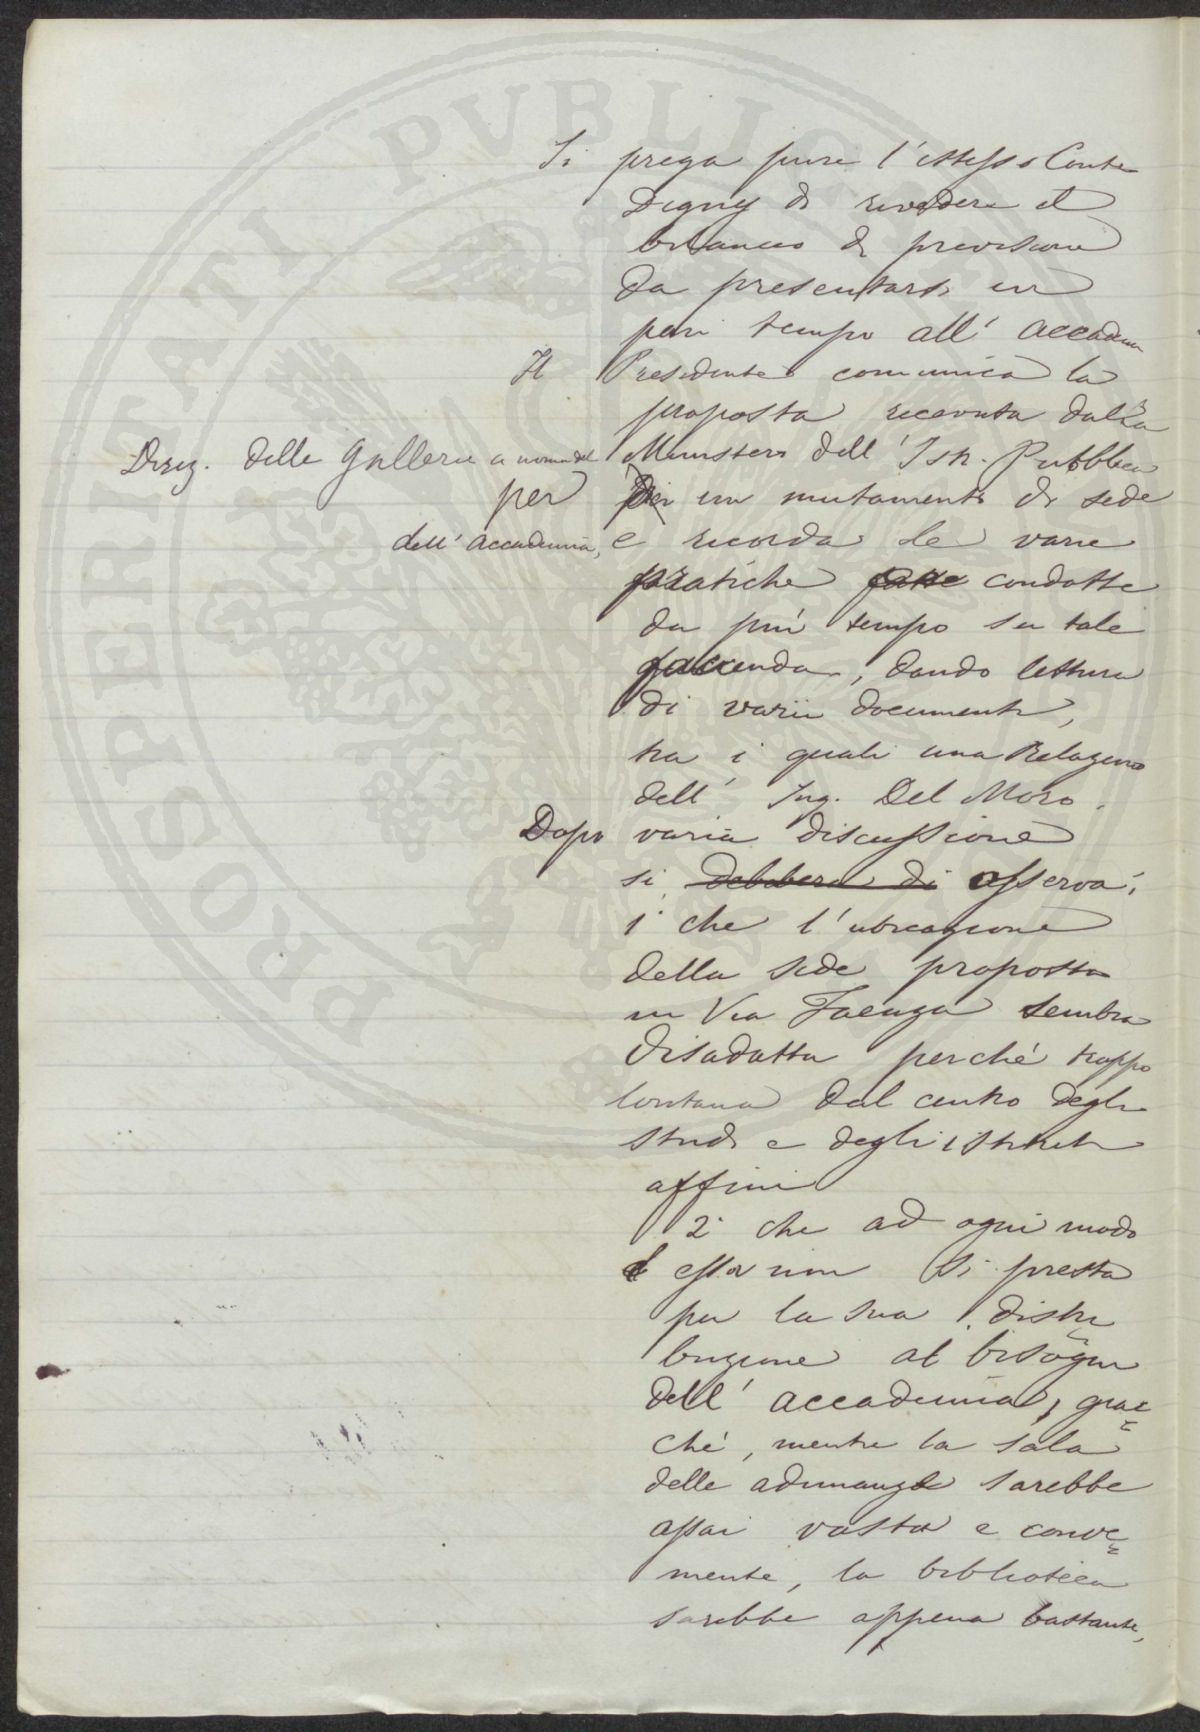 Si prega pure l'istesso Conte
Digny di rivedere il
bilancio di previsione
da presentarsi in
pari tempo all' Accademia
Il Presidente comunica la
proposta ricevuta dalla
Direz. delle Gallerie a nome del Ministero dell' Istr. Pubblica
per di un mutamento di sede
dell' Accademia, e ricorda le varie
pratiche fatte condotte
da più tempo su tale
faccenda, dando lettura
di varii documenti,
tra i quali una Relazione
dell' Ing. Del Moro.
Dopo varia discussione
si delibera di osserva:
1° che l'ubicazione
della sede proposta
in Via Faenza sembra
disadatta perché troppo
lontana dal centro degli
studi e degli istituti
affini
2° che ad ogni modo
essa non si presta
per la sua distri
buzione ai bisogni
dell' Accademia, giac=
ché, mentre la sala
delle adunanze sarebbe
assai vasta e conve=
niente, la biblioteca
sarebbe appena bastante,
PROSPERITATI PVBLICAE